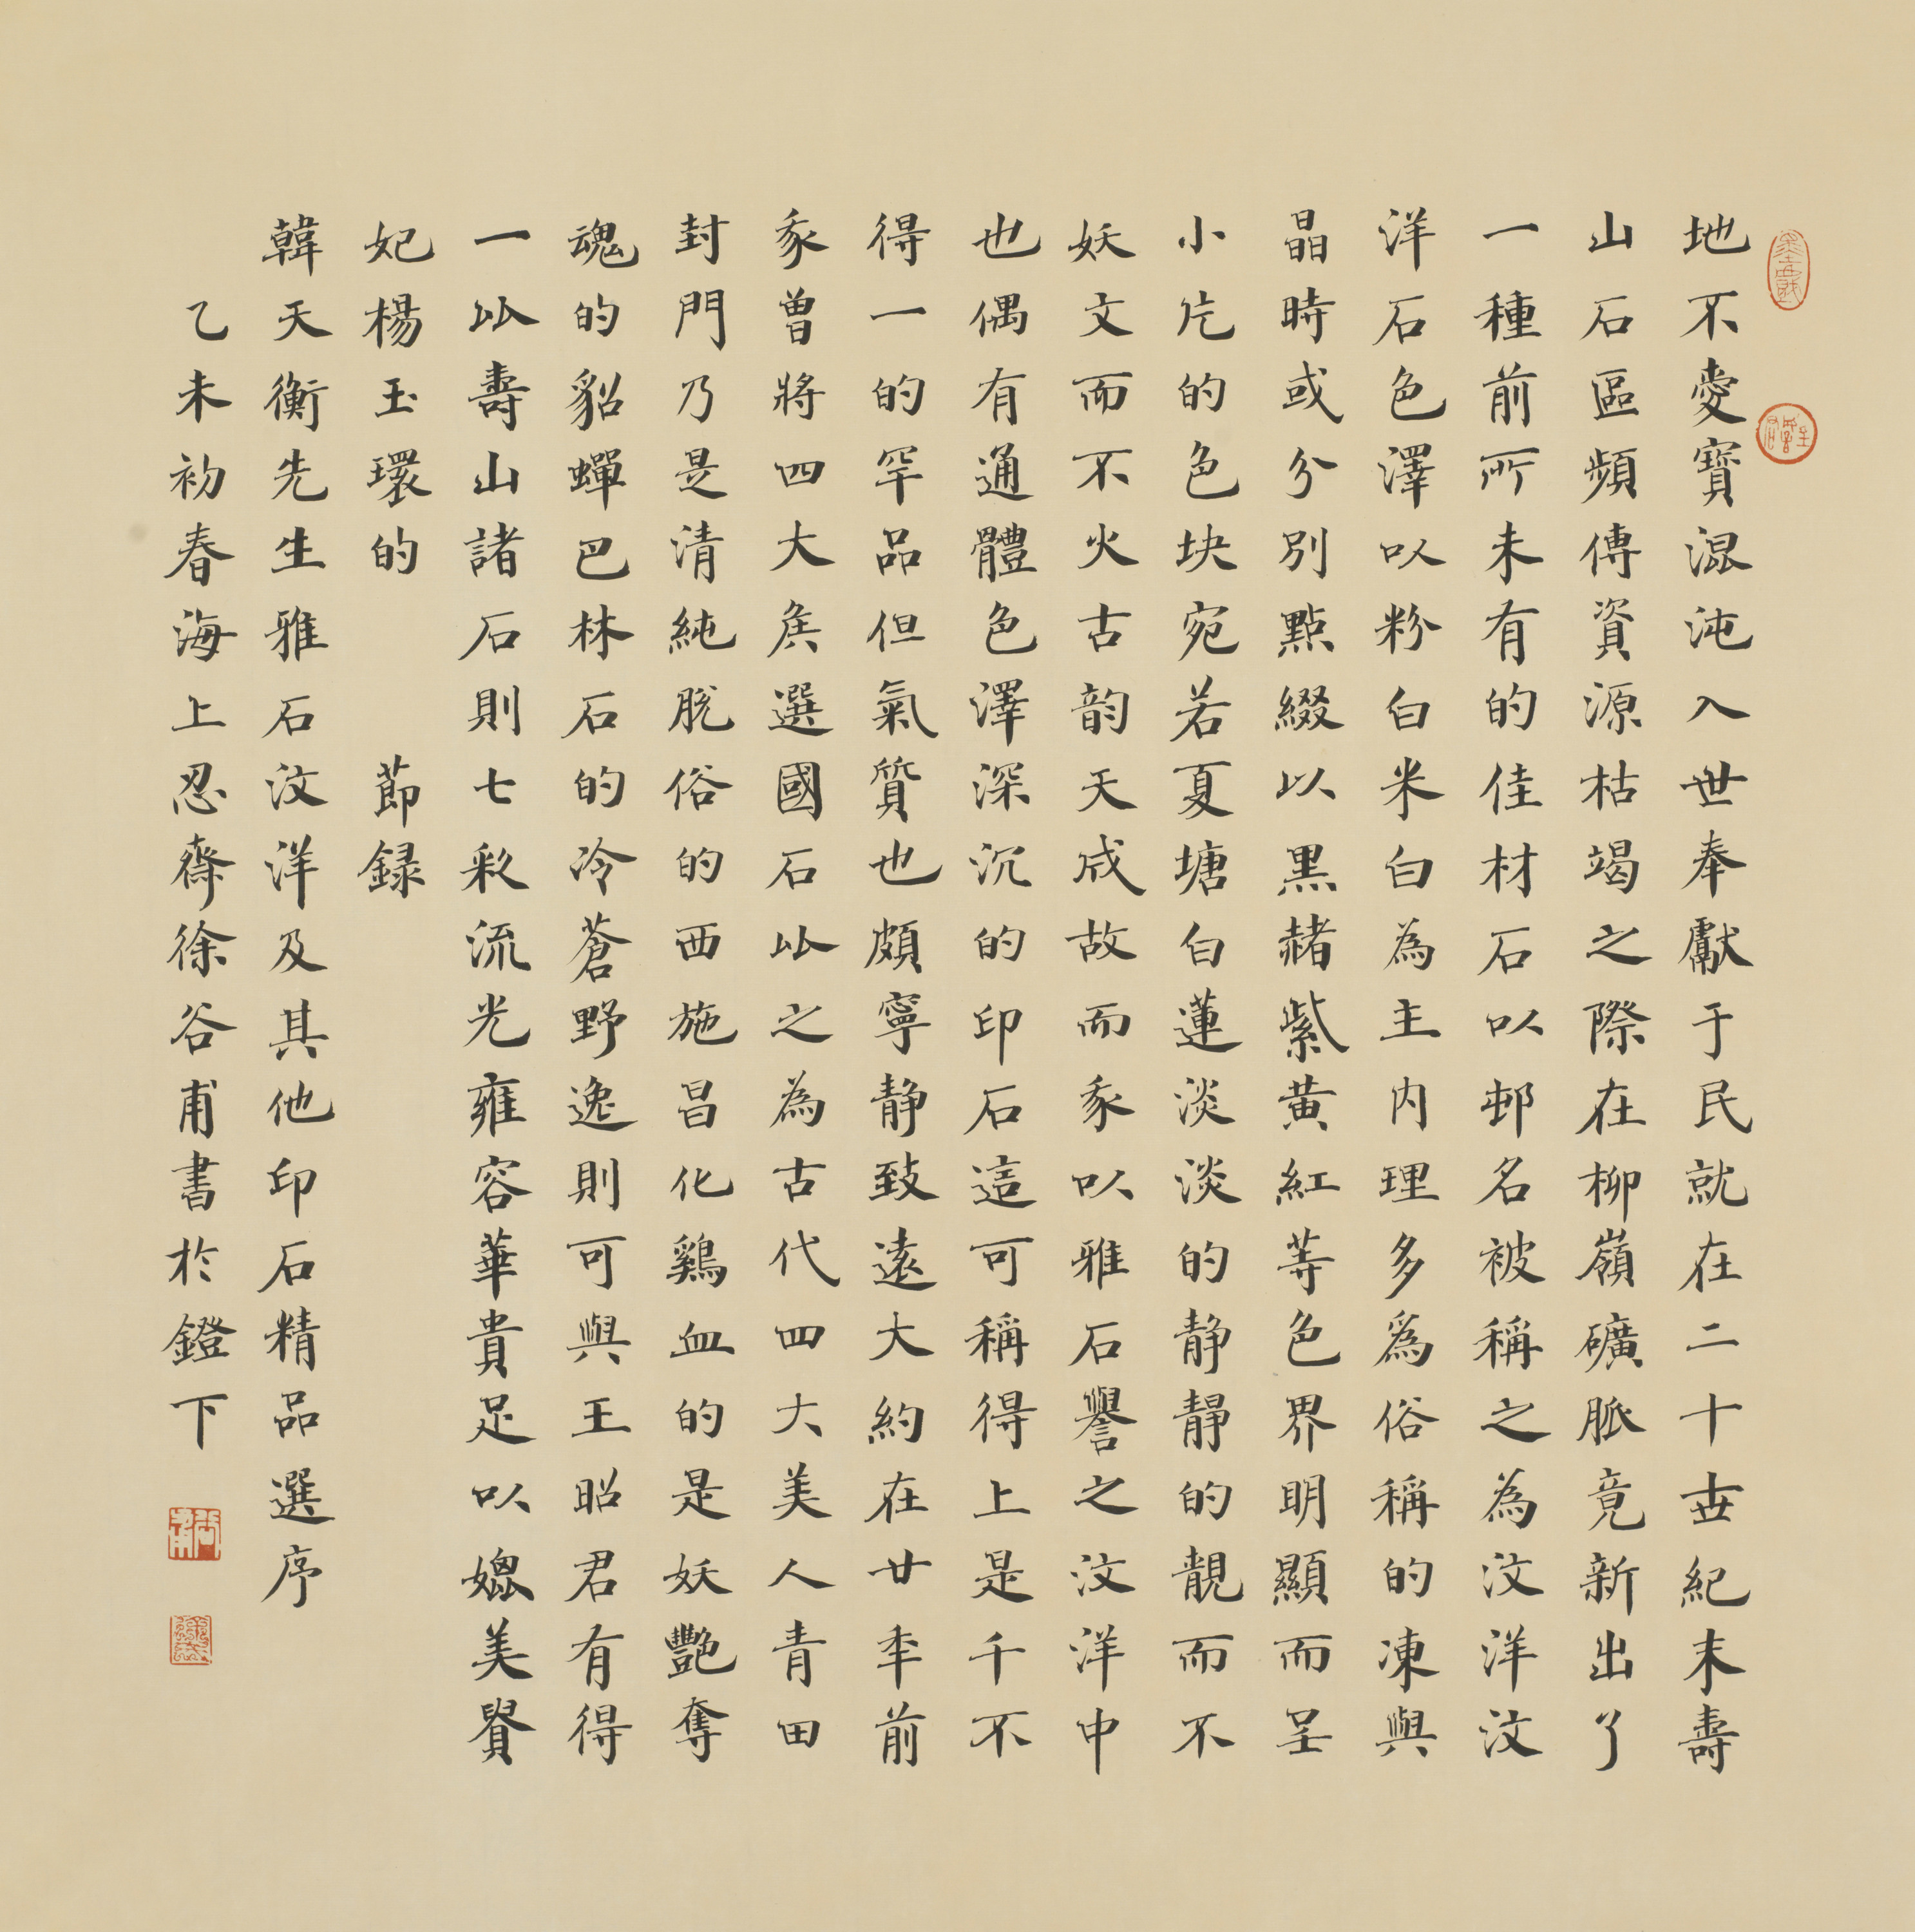 地不愛寶混沌入世奉獻于民就在二十世紀末壽
山石區頻傳資源枯竭之際在柳嶺礦脈竟新出了
一種前所未有的佳材石以邨名被稱之為汶洋汶
洋石色澤以粉白米白為主内理多爲俗稱的凍與
晶時或分別點綴以黑赭紫黄紅等色界明顯而呈
小片的色块宛若夏塘白蓮淡淡的静静的靚而不
妖文而不火古韵天成故而我以雅石譽之汶洋中
也偶有通體色澤深沉的印石這可稱得上是千不
得一的罕品但氣質也頗寧静致遠大約在廿年前
我曾將四大矦選國石比之為古代四大美人青田
封門乃是清純脫俗的西施昌化鷄血的是妖艷奪
魂的貂蟬巴林石的冷蒼野逸則可與王昭君有得
一比壽山諸石則七彩流光雍容華貴足以媲美貴
妃楊玉環的 節録
韓天衡先生雅石汶洋及其他印石精品選序
乙未初春海上忍齋徐谷甫書於鐙下
谷甫